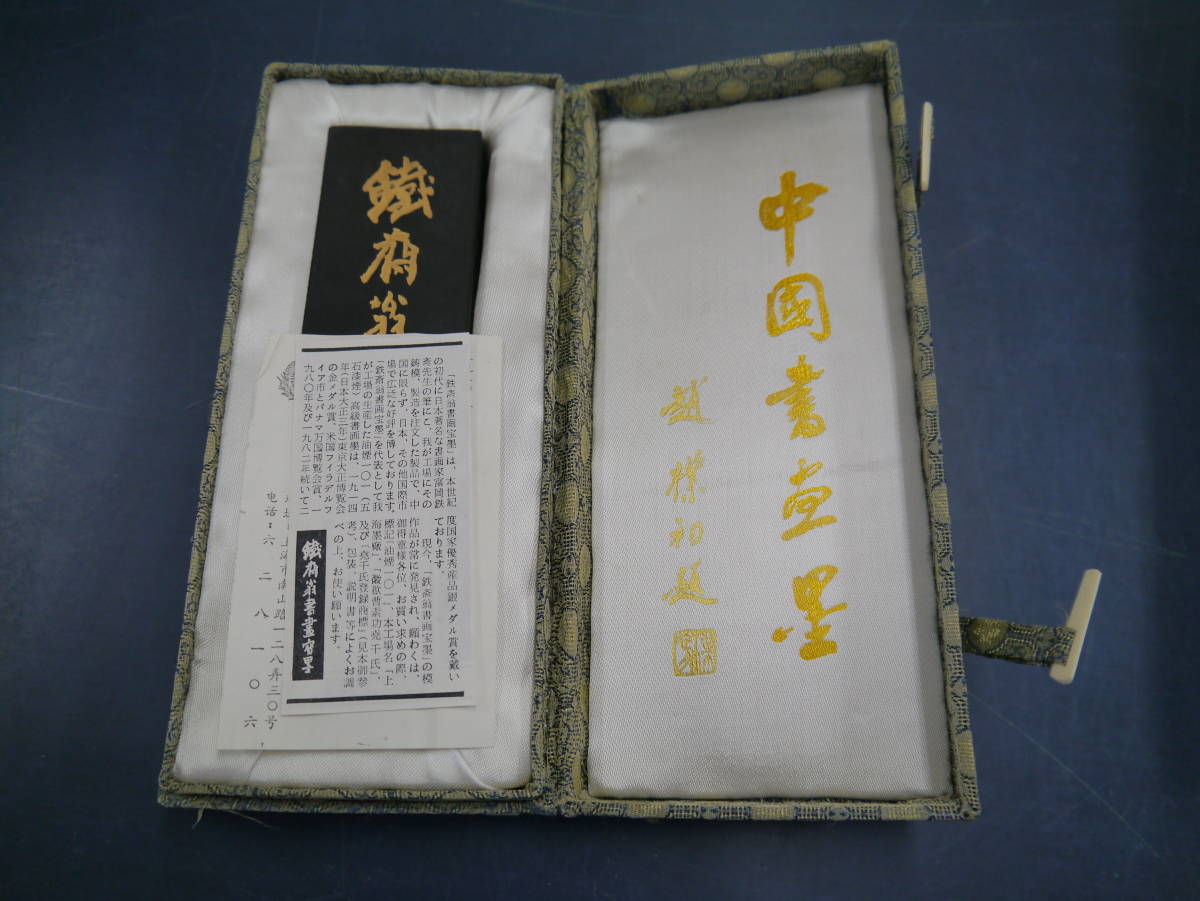 中國書画墨
趙樸初題
鐵斎翁
「鉄斎翁書画宝墨」は、本世紀
の初代に日本著名な書画家富岡鉄
斎先生の筆にこ、我が工場にその
鋳模、製造を注文した製品で、中
国に限らず、日本、その他国際市
場で広泛な好評を博しております。
「鉄斎翁書画宝墨」を代表として我
が工場の生産した油煙一〇一(五
石漆煙)高級書画墨は、一九一四
年(日本大正三年)東京大正博覧会
の金メダル賞、米国フィラデルフ
イア市とパナマ万国博覧会賞、一
九八〇年及び一九八二年続いて二
度国家優秀産品銀メダル賞を戴い
ております。
現今、「鉄斎翁書画宝墨」の模
作品が常に発見され、願わくは、
御得意様各位、お買い求めの際、
標記「油煙一〇一」、本工場名「上
海墨廠」、「徽歙曹素功堯千氏」、
及び「堯千氏登録商標」(見本御参
考)、包装、説明書等によくお調
べの上、お使い願います。
鐵斎翁書畫寶墨
上海市南山路一二八弄三〇号
电话:六二八一〇六